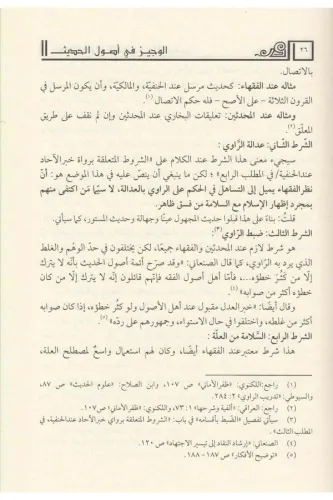 ٢٦ الوجيز في أصول الحديث
بالاتصال.
مثاله عند الفقهاء: كحديث مرسل عند الحنفيّة، والمالكيّة، وأن يكون المرسل في
القرون الثلاثة - على الأصح - فله حكم الاتصال (١).
ومثاله عند المحدثين: تعليقات البخاري عند المحدثين وإن لم نقف على طريق
المعلّق (٢).
الشرط الثاني: عدالة الرَّاوي:
سيجيء معنى هذا الشرط عند الكلام على «الشروط المتعلقة برواة خبر الآحاد
عند الحنفية/ في المطلب الرابع» ؛ لكن ما ينبغي أن ينصّ عليه في هذا الموضع هو: أنّ
نظر الفقهاء يميل إلى التساهل في الحكم على الراوي بالعدالة، لا سيّما مَن اكتفى منهم
بمجرد إظهار الإسلام مع السلامة من فسق ظاهر.
قلتُ: بناءً على هذا قبلوا حديث المجهول عينًا وجهالة وحديث المستور، كما سيأتي.
الشرط الثالث: ضبط الرَّاوي (٣):
هو شرط لازم عند المحدثين والفقهاء جميعًا، لكن يختلفون في حدّ الوهم والغلط
الذي يرد به الراوي، كما قال الصنعاني: «وقد صرّح أئمة أصول الحديث بأنّه لا يترك
إلّا من كَثُر خطؤه...، فأمّا أهل أصول الفقه فإنّهم قائلون إنّه لا يترك إلّا من كان
خطؤه أكثر من صوابه» (٤)
وقال أيضًا: «خبر العدل مقبول عند أهل الأصول ولو كثُر خطؤه، إذا كان صوابه
أكثر من غلطه، واختلفوا في حال الاستواء، وجمهورهم على ردّه» (٥).
الشرط الرابع: السَّلامة من العلّة :
هذا شرط معتبر عند الفقهاء أيضًا، وكان لهم استعمال واسعٌ لمصطلح العلة،
(١) راجع: اللكنوي: «ظفر الأماني» ص ١٠٧، وابن الصلاح: «علوم الحديث» ص ٨٧،
والسيوطي: «تدريب الراوي» ٢: ٢٨٤.
(٢) راجع: العراقي: «ألفية وشرحها» ١: ٧٣، واللكنوي: «ظفر الأماني» ص ١٠٧.
(٣) سيأتي تفصيل «الضبط بأقسامه» في باب: «الشروط المتعلقة برواة خبر الآحاد عند الحنفية، في
المطلب الثالث».
(٤) الصنعاني: «إرشاد النقاد إلى تيسير الاجتهاد» ص ١٢٠.
(٥) «توضيح الأفكار» ص ١٨٧-١٨٨.